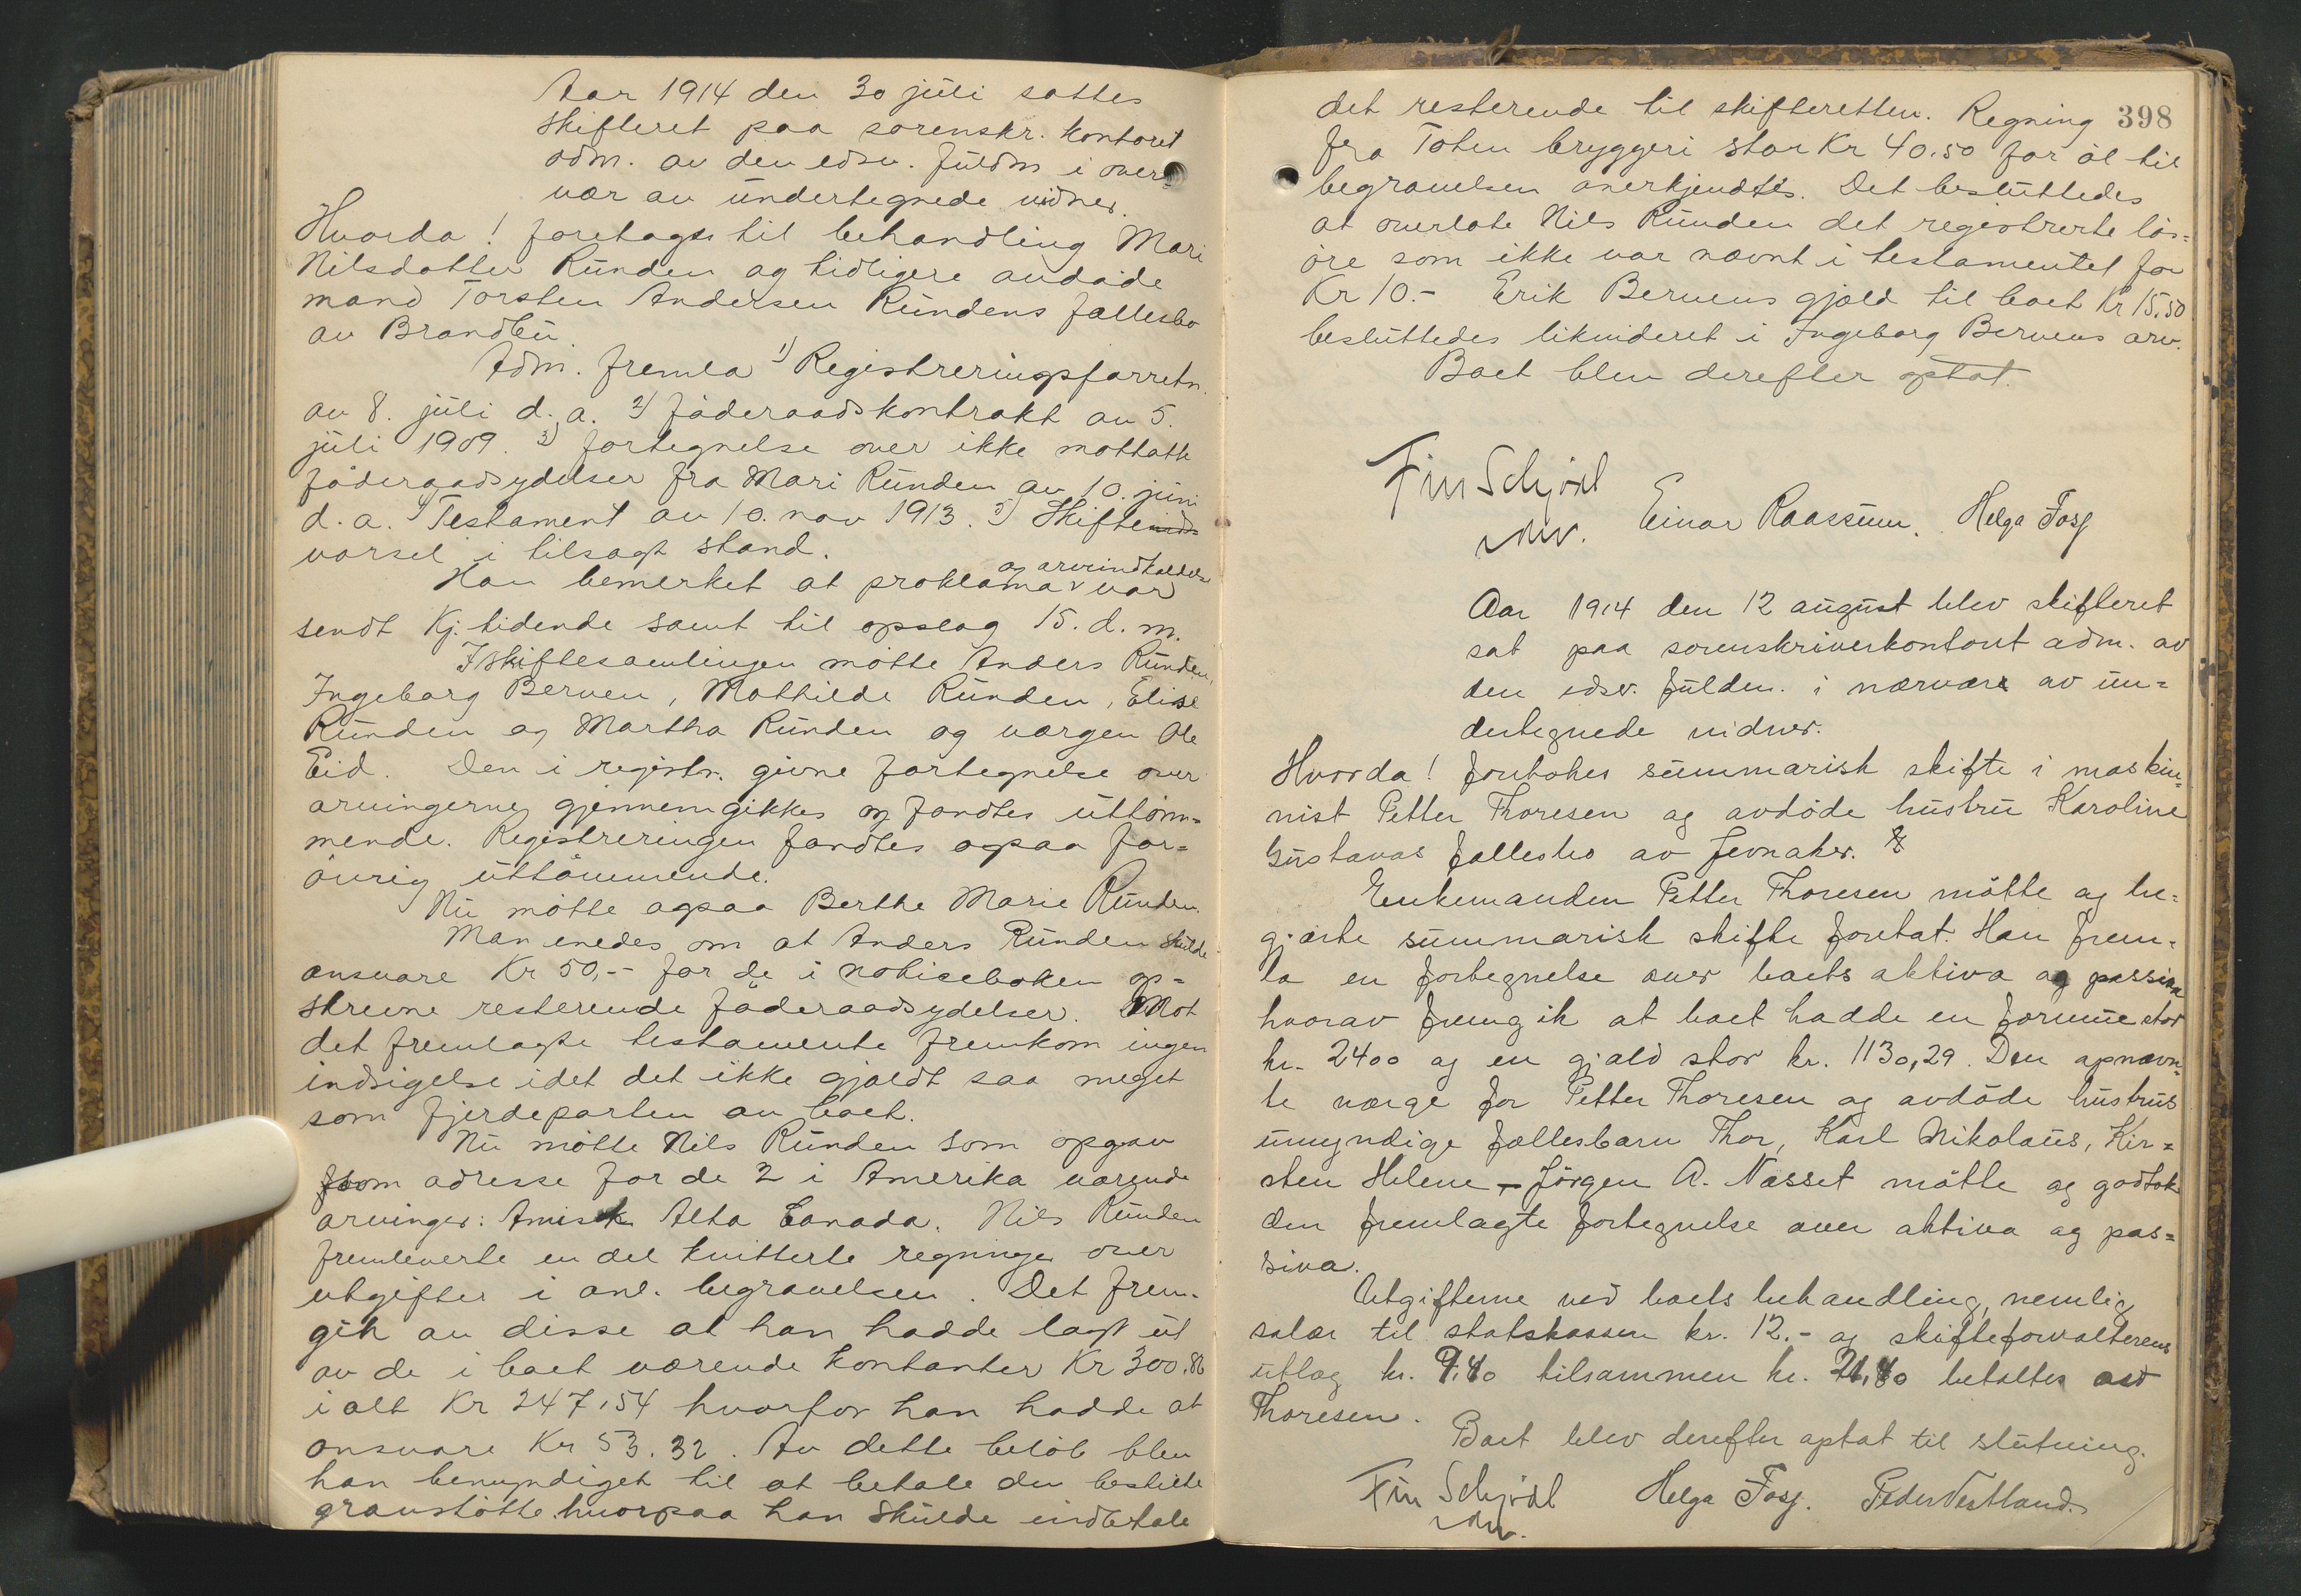 Aar 1914 den 30 juli sattes
skifteret paa sorenskr. kontoret
adm. av den edsv. fuldm i over=
vær av undertegnede vidner.
Hvorda! foretages til behandling Mari
Nilsdatter Runden og tidligere avdøde
mand Torsten Andersen Rundens fællesbo
av Brandbu.
Adm. fremla 1) Registreringsforretn.
av 8. juli d. a. 2) føderaadskontrakt av 5.
juli 1909. 3) fortegnelse over ikke mottatte
føderaadsydelser fra Mari Runden av 10. juni
d. a. 4) Testament av 10. nov 1913. 5) Skifte
varsel i tilsagt stand.
Han bemerket at proklama og arveindkaldelse var
sendt Kj. tidende samt til opslag 15. d. m.
I skiftesamlingen møtte Anders Runden,
Ingeborg Berven, Mathilde Runden, Elise
Runden og Martha Runden og værgen Ole
Eid. Den i registr. givne fortegnelse over
arvingerne gjennemgikkes og fandtes uttøm=
mende. Registreringen fandtes ogsaa for=
øvrig uttømmende.
Nu møtte ogsaa Berthe Marie Runden.
Man enedes om at Anders Runden skulde
ansvare Kr 50,-- for de i notiseboken op=
skrevne resterende føderaadsydelser. Mot
det fremlagte testamente fremkom ingen
indsigelse idet det ikke gjældt saa meget
som fjerdeparten av boet.
Nu møtte Nils Runden som opgav
som adresse for de 2 i Amerika værende
arvinger: Amisk Alta Canada. Nils Runden
fremleverte en del kvitterte regninger over
utgifter i anl. begravelsen. Det frem-
gik av disse at han hadde lagt ut
av de i boet værende kontanter Kr 300.86
ialt Kr 247,54 hvorfor han hadde at
ansvare Kr 53.32. Av dette beløb blev
han bemyndiget til at betale den bestilte
gravstøtte hvorpaa han skulde indbetale
398
det resterende til skifteretten. Regning
fra Toten bryggeri stor Kr 40.50 for øl til
begravelsen anerkjendtes. Det besluttedes
at overlate Nils Runden det registrerte løs=
øre som ikke var nævnt i testamentet for
Kr 10.- Erik Bervens gjæld til boet Kr 15.50
besluttedes likvideret i Ingeborg Bervens arv.
Boet blev derefter optat.
Fin Schjødt
edsv. Einar Raassum. Helga Fosj
Aar 1914 den 12 august blev skifteret
sat paa sorenskriverkontoret adm. av
den edsv. fuldm. i nærvær av un=
dertegnede vidner.
Hvorda! foretokes summarisk skifte i maskin=
nist Petter Thoresen og avdøde hustru Karoline
Gustavas fællesbo av Jevnaker.
Enkemanden Petter Thoresen møtte og be=
gjærte summarisk skifte foretat. Han frem=
la en fortegnelse over boets aktiva og passiva
hvorav fremgik at boet hadde en formue stor
kr. 2400 og en gjæld stor kr. 1130,29. Den opnævn=
te værge for Petter Thoresen og avdøde hustrus
umyndige fællesbarn Thor, Karl Nikolaus, Kir=
sten Helene - Jørgen A. Næsset møtte og godtok
den fremlagte fortegnelse over aktiva og pas=
siva.
Utgifterne ved boets behandling, nemlig
salær til statskassen kr. 12.- og skifteforvalterens
utlæg kr. 9.40 tilsammen kr. 21,40 betaltes av
Thoresen.
Boet blev derefter optat til slutning.
Fin Schjødt Helga Fosj. Peder Vestland.
edsv.